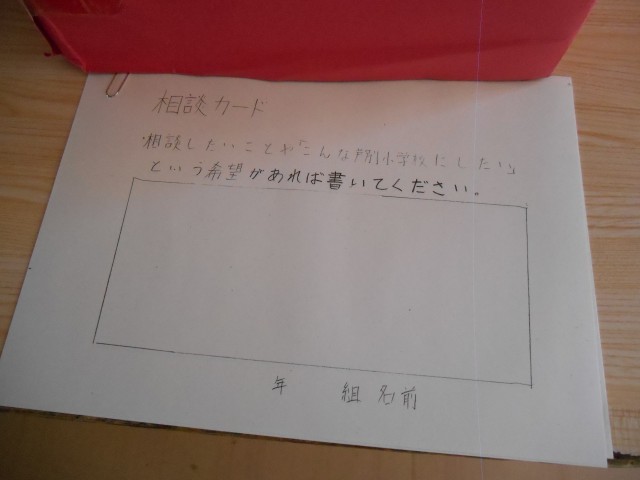 相談カード
・相談したいことや「こんな芦別小学校にしたい」
という希望があれば書いてください。
年 組 名前